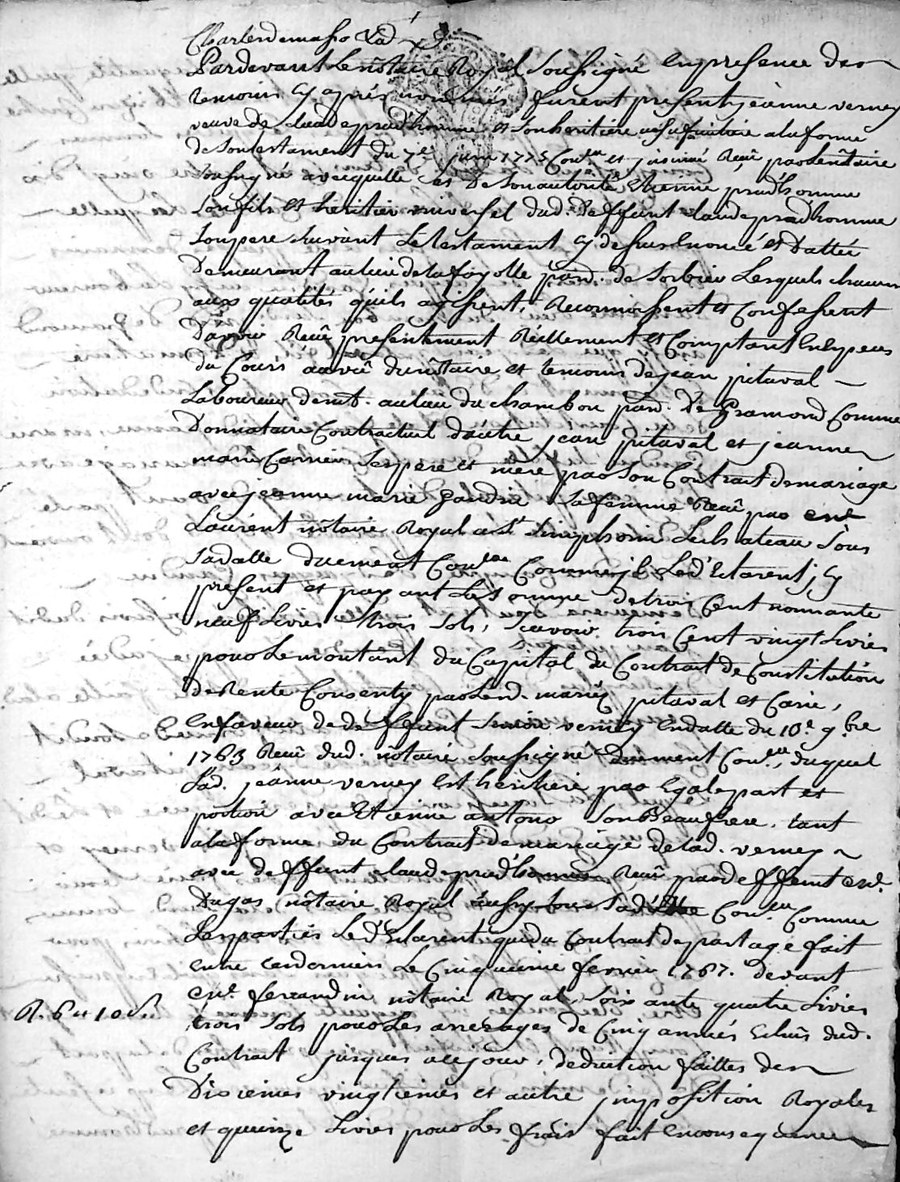 Pardevant Le notaire Royal Soussigné en presence des
temoins cy après nommés furent present jeanne verney
veuve de claude prud'homme et son heritiere usufruitiere a la forme
de son testament du 7e juin 1775 Conlle et insinué Reçu par le notaire
Soussigné avec quelle et de son autorité Etienne prud'homme
Son fils et heritier universel dud. deffunt claude prudhomme
Son pere Suivant Le testament cy dessus Enoncé et Datté
Demeurant au lieu de la fayolle parr. de Sorbier Lesquels chacun
aux qualités qu'ils agissent, Reconnoissent et Confessent
D'avoir Reçu presentement Réellement et Comptant En Especes
du Cours au vû du notaire et temoins de jean pitaval
Laboureur demt. au lieu du chambon parr. de Gramond Comme
Donnataire Contractuel d'autre jean pitaval et jeanne
marie Carrier Ses pere et mere par Son Contrat de mariage
avec jeanne marie Sa femme Reçu par me
Laurent notaire Royal a St. Simphorien Le chateau Sous
Sa datte duement Conlle Le d. Et larent icy
present et payant La Somme de trois Cent nonnante
neuf Livres trois Sols, Scavoir trois Cent vingt Livres
pour Le montant du Capital du Contrat de Constitution
de Rente Consenty par Lesd. mariés pitaval et Carrier,
En faveur de deffunt Simon verney En datte du 10e 9bre
1763 Reçu dud. notaire Soussigné duement Conllé, duquel
Lad. jeanne verney Est heritiere par Egale part et
portion avec Etienne Son Beaufrere, tant
a la forme du Contrat de mariage de lad. verney
avec deffunt claude prud'homme Reçu par deffunt me.
Dugas notaire Royal aussy sous Sa datte Conllé Comme
Les parties Le d. que du Contrat de partage fait
entre ces derniers Le Cinquieme fevrier 1767. devant
me. ferrandin notaire Royal, Soixante quatre Livres
trois Sols pour Les arrerages de Cinq années Echus dud.
R. 6tt 10 s.
Contrat jusques a ce jour, deduction faittes des
Dixiemes vingtiemes et autre imposition Royales
et quinze Livres pour Les frais fait en consequence